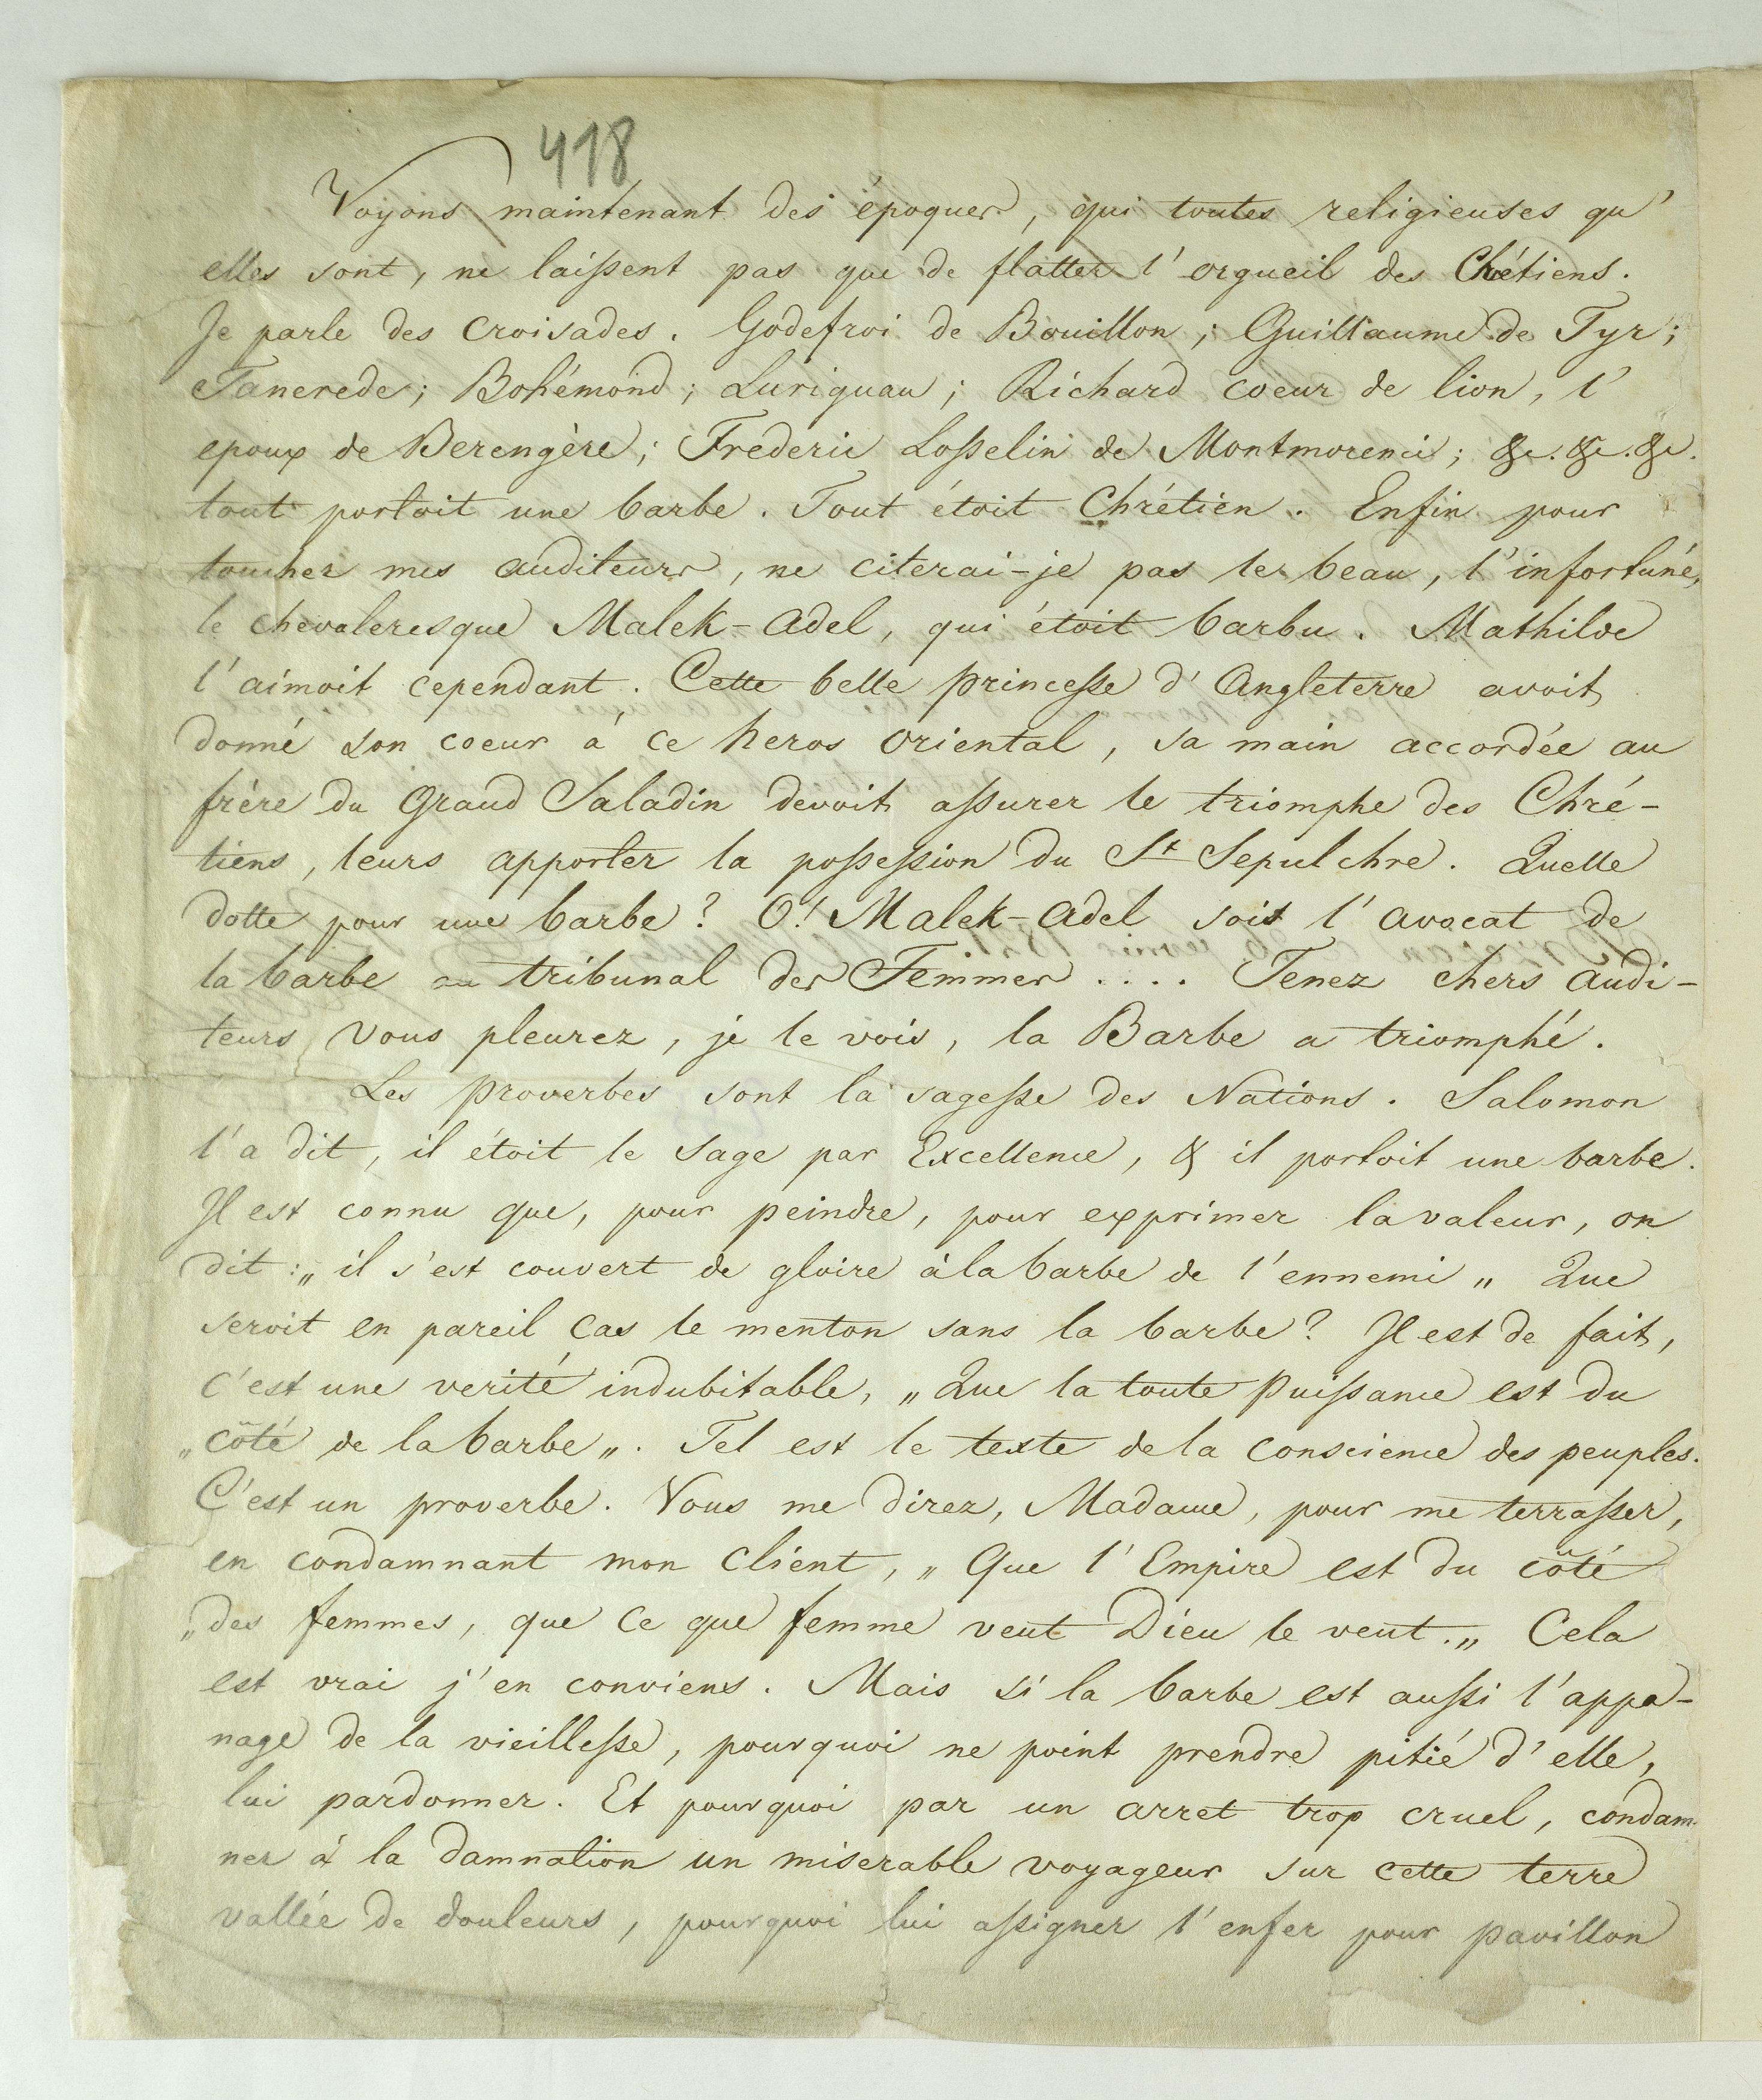 418
Voyons maintenant des époques, qui toutes religieuses qu'
elles sont, ne laissent pas que de flatter l'orgueil des Chrétiens.
Je parle des Croisades. Godefroi de Bouillon; Guillaume de Tyr;
Tancrede; Bohémond; Lusignan; Richard coeur de lion, l'
epoux de Berengère; Frederic Josselin de Montmorenci; &c. &c. &c.
tout portoit une barbe. Tout étoit Chrétien. Enfin pour
toucher mes auditeurs, ne citerai-je pas le beau, l'infortuné,
le chevaleresque Malek-Adel, qui étoit barbu. Mathilde
l'aimoit cependant. Cette belle princesse d'Angleterre avoit
donné son coeur à ce heros oriental, sa main accordée au
frère du Grand Saladin devoit assurer le triomphe des Chré-
tiens, leurs apporter la possession du St Sepulchre. Quelle
dotte pour une barbe? O! Malek-Adel sois l'avocat de
la barbe au tribunal des Femmes .... Tenez chers audi-
teurs vous pleurez, je le vois, la Barbe a triomphé.
Les proverbes sont la sagesse des Nations. Salomon
l'a dit, il étoit le sage par Excellence, & il portoit une barbe.
Il est connu que, pour peindre, pour exprimer la valeur, on
dit: „ il s'est couvert de gloire à la barbe de l'ennemi „ Que
seroit en pareil cas le menton sans la barbe? Il est de fait,
c'est une verité indubitable, „Que la toute puissance est du
„côté de la barbe„. Tel est le texte de la conscience des peuples.
C'est un proverbe. Vous me direz, Madame, pour me terrasser,
en condamnant mon client, „ Que l'Empire est du côté
„des femmes, que ce que femme veut Dieu le veut.„ Cela
est vrai j'en conviens. Mais si la barbe est aussi l'appa-
nage de la vieillesse, pourquoi ne point prendre pitié d'elle,
lui pardonner. Et pourquoi par un arret trop cruel, condam-
ner à la damnation un miserable voyageur sur cette terre
vallée de douleurs, pourquoi lui assigner l'enfer pour pavillon